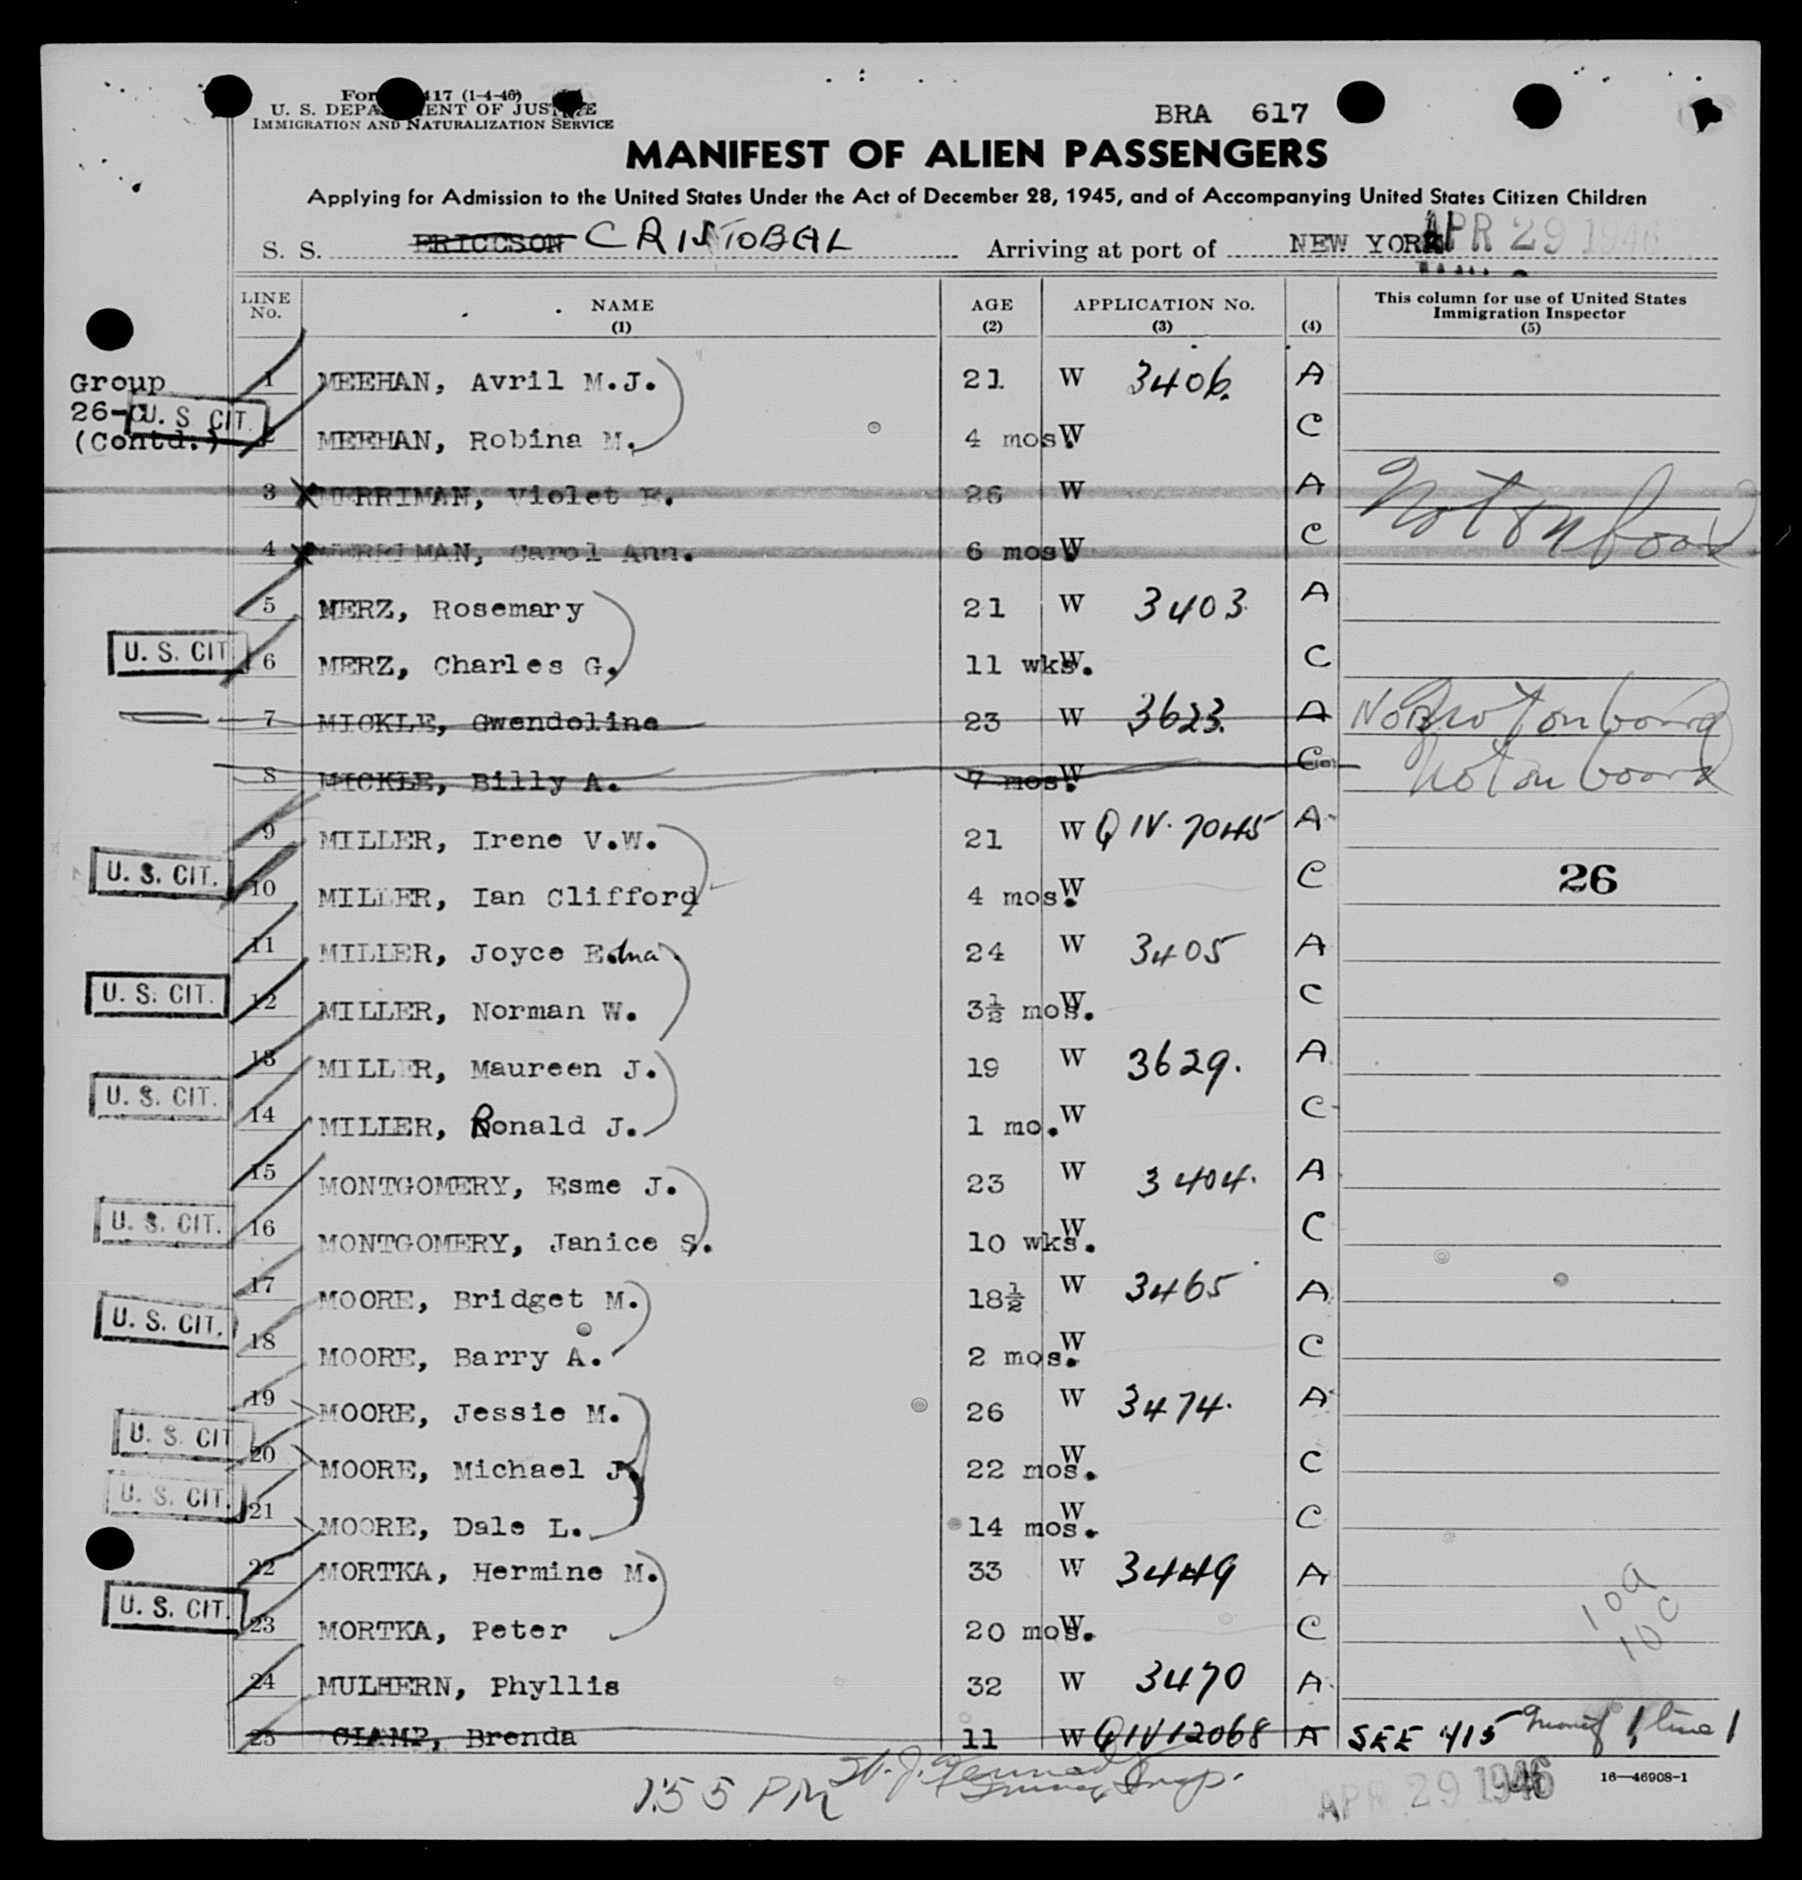 417 (1-4-46)
U. S. DEPARTMENT OF JUSTICE
IMMIGRATION AND NATURALIZATION SERVICE
BRA 617
MANIFEST OF ALIEN PASSENGERS
Applying for Admission to the United States Under the Act of December 28, 1945, and of Accompanying United States Citizen Children
S. S. ERICCSON CRISTOBAL Arriving at port of NEW YORK APR 29 1946
LINE No. NAME (1) AGE (2) APPLICATION No. (3) (4) This column for use of United States Immigration Inspector (5)
Group
26-C
(Contd.)
1 MEEHAN, Avril M.J. 21 W 3406. A
U. S. CIT. 2 MEEHAN, Robina M. 4 mos. W C
3 X MERRIMAN, Violet E. 26 W A Not on board
4 X MERRIMAN, Carol Ann. 6 mos. W C
5 MERZ, Rosemary 21 W 3403 A
U. S. CIT. 6 MERZ, Charles G. 11 wks. W C
7 MICKLE, Gwendoline 23 W 3623. A NOB not on board
8 MICKLE, Billy A. 7 mos. W C not on board
9 MILLER, Irene V.W. 21 W QIV. 7045 A
U. S. CIT. 10 MILLER, Ian Clifford 4 mos. W C 26
11 MILLER, Joyce Edna 24 W 3405 A
U. S. CIT. 12 MILLER, Norman W. 3½ mos. W C
13 MILLER, Maureen J. 19 W 3629. A
U. S. CIT. 14 MILLER, Ronald J. 1 mo. W C
15 MONTGOMERY, Esme J. 23 W 3404. A
U. S. CIT. 16 MONTGOMERY, Janice S. 10 wks. W C
17 MOORE, Bridget M. 18½ W 3465 A
U. S. CIT. 18 MOORE, Barry A. 2 mos. W C
19 MOORE, Jessie M. 26 W 3474. A
U. S. CIT 20 MOORE, Michael J. 22 mos. W C
U. S. CIT. 21 MOORE, Dale L. 14 mos. W C
22 MORTKA, Hermine M. 33 W 3449 A
U. S. CIT. 23 MORTKA, Peter 20 mos. W C
10a
10C
24 MULHERN, Phyllis 32 W 3470 A
25 CLAMP, Brenda 11 W QIV12068 A SEE 415 manif 1 line 1
1:55 PM
APR 29 1946
16—46908-1